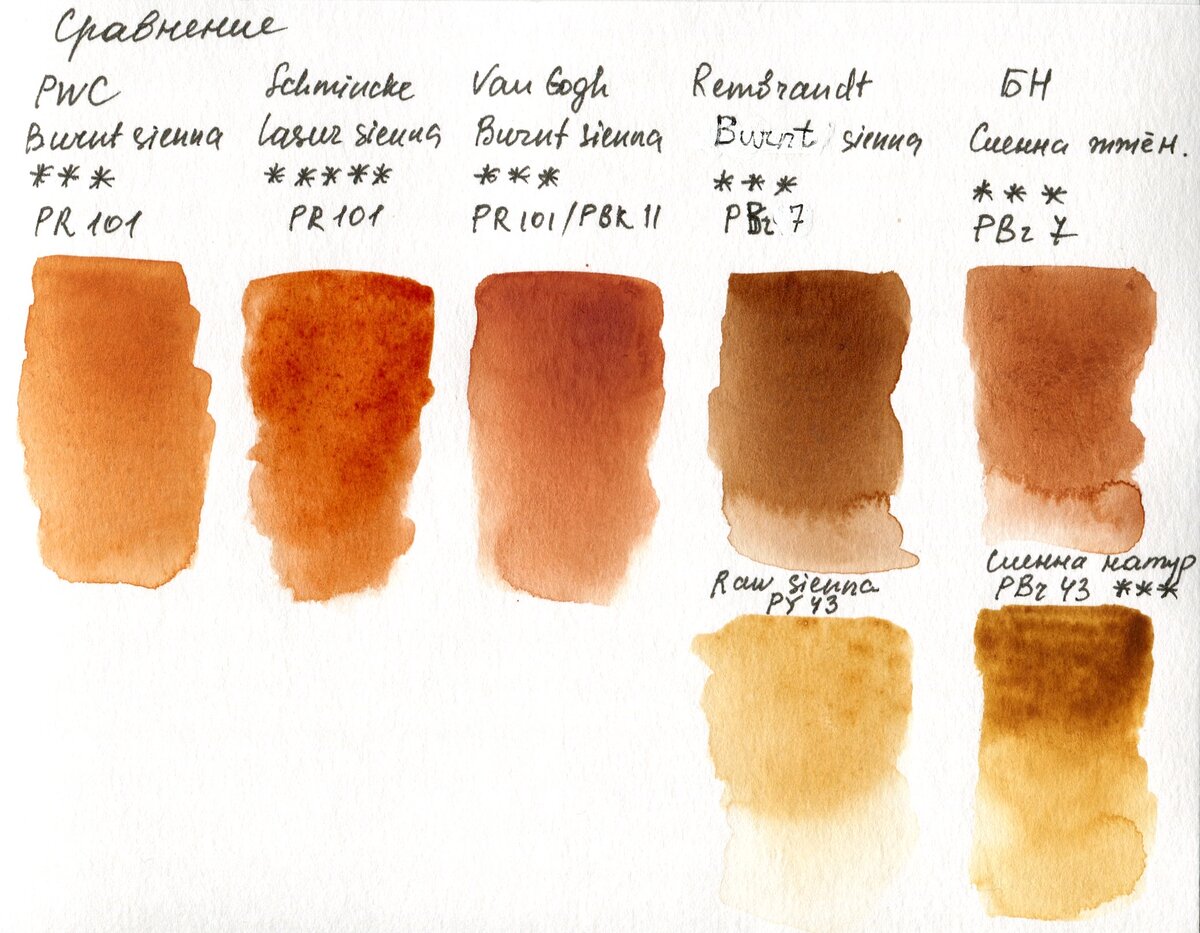 Сравнение
PWC
Burnt sienna
***
PR 101
Schmincke
Lasur sienna
*****
PR 101
Van Gogh
Burnt sienna
***
PR 101/PBK 11
Rembrandt
Burnt sienna
***
PBr 7
БН
Сиенна жжён.
***
PBr 7
Raw sienna
PY 43
Сиенна натур
PBr 43 ***